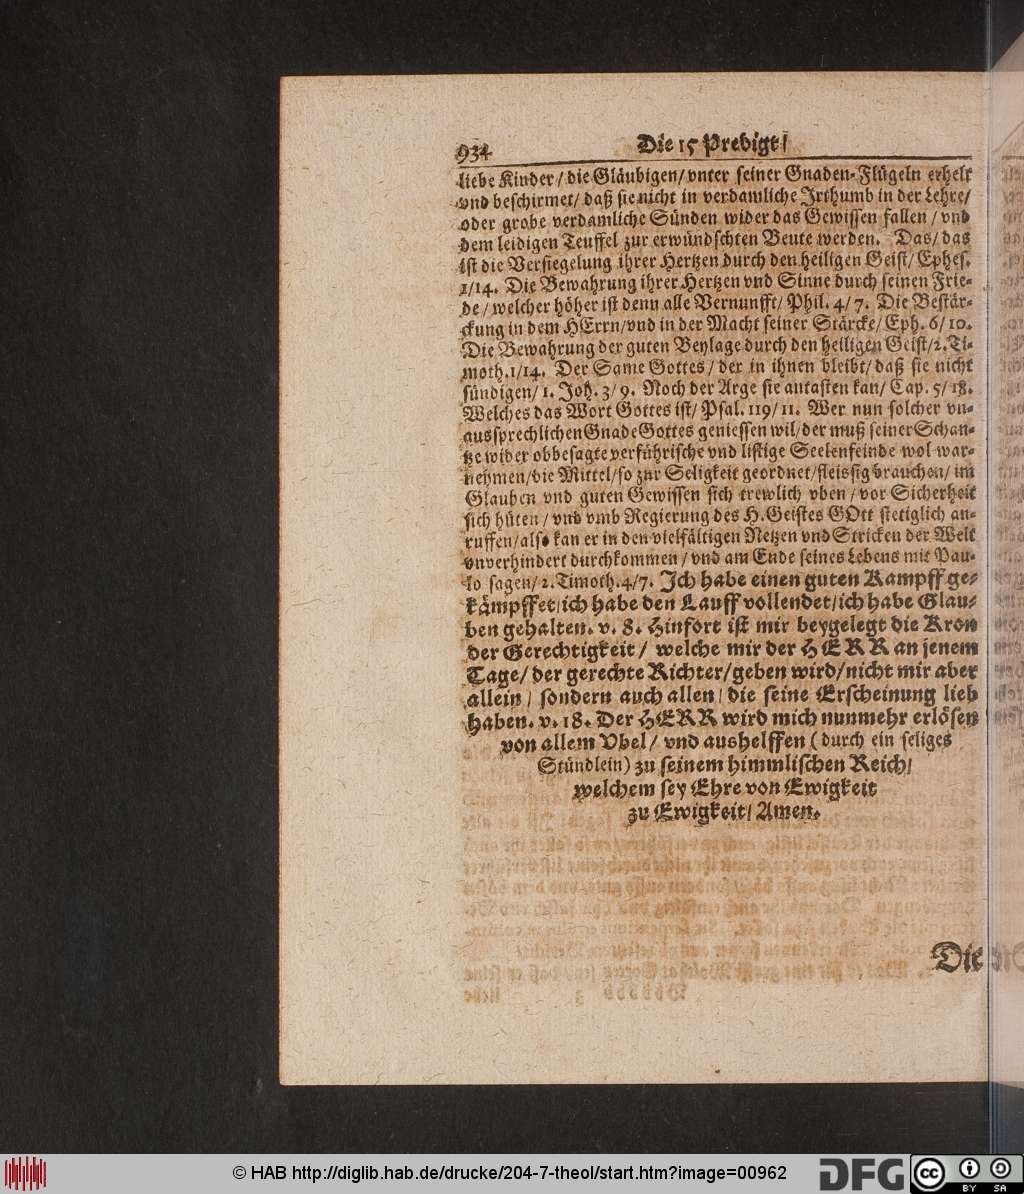 934
Die 15 Predigt/
liebe Kinder/ die Gläubigen/ vnter seiner Gnaden-Flügeln erhelt
vnd beschirmet/ daß sie nicht in verdamliche Irthumb in der Lehre/
oder grobe verdamliche Sünden wider das Gewissen fallen/ vnd
dem leidigen Teuffel zur erwündschten Beute werden. Das/ das
ist die Versiegelung ihrer Hertzen durch den heiligen Geist/ Ephes.
1/14. Die Bewahrung ihrer Hertzen vnd Sinne durch seinen Frie-
de/ welcher höher ist denn alle Vernunfft/ Phil. 4/ 7. Die Bestär-
ckung in dem HErrn/ vnd in der Macht seiner Stärcke/ Eph. 6/10.
Die Bewahrung der guten Beylage durch den heiligen Geist/2. Ti-
moth.1/14. Der Same Gottes/ der in ihnen bleibt/ daß sie nicht
sündigen/ 1. Joh. 3/ 9. Noch der Arge sie antasten kan/ Cap. 5/ 18.
Welches das Wort Gottes ist/ Psal. 119/ 11. Wer nun solcher vn-
aussprechlichen Gnade Gottes geniessen wil/ der muß seiner Schan-
tze wider obbesagte verführische vnd listige Seelenfeinde wol war-
nehmen/ die Mittel/ so zur Seligkeit geordnet/ fleissig brauchen/ im
Glauben vnd guten Gewissen sich trewlich vben/ vor Sicherheit
sich hüten/ vnd vmb Regierung des H. Geistes GOtt stetiglich an-
ruffen/ also kan er in den vielfältigen Netzen vnd Stricken der Welt
vnverhindert durchkommen/ vnd am Ende seines Lebens mit Pau-
lo sagen/ 2. Timoth.4/7. Ich habe einen guten Kampff ge-
kämpffet/ ich habe den Lauff vollendet/ ich habe Glau-
ben gehalten. v. 8. Hinfort ist mir beygelegt die Kron
der Gerechtigkeit/ welche mir der HERR an jenem
Tage/ der gerechte Richter/ geben wird/ nicht mir aber
allein/ sondern auch allen/ die seine Erscheinung lieb
haben. v. 18. Der HERR wird mich nunmehr erlösen
von allem Vbel/ vnd aushelffen (durch ein seliges
Stündlein) zu seinem himmlischen Reich/
welchem sey Ehre von Ewigkeit
zu Ewigkeit/ Amen.
Die
© HAB http://diglib.hab.de/drucke/204-7-theol/start.htm?image=00962
DFG
cc BY SA